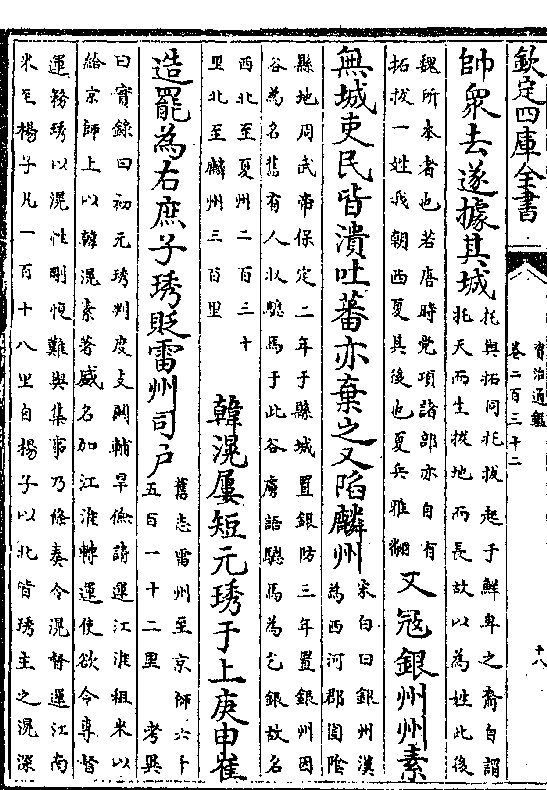 欽定四庫全書
資治通鑑
卷二百三十二
十八
帥衆去遂據其城
托與拓同托拔起于鮮卑之裔自謂
托天而生拔地而長故以為姓此後
魏所本者也若唐時党項諸部亦自有
拓拔一姓我朝西夏其後也夏兵雅翻
又寇銀州州素
無城吏民皆潰吐蕃亦棄之又陷麟州
宋白曰銀州漢
為西河郡圁陰
縣地周武帝保定二年于縣城置銀防三年置銀州因
谷為名舊有人牧驄馬于此谷虜語驄馬為乞銀故名
西北至夏州二百三十
里北至麟州三百里
韓滉屢短元琇于上庚申崔
造罷為右庶子琇貶雷州司户
舊志雷州至京師六千
五百一十二里 考異
曰實錄曰初元琇判度支關輔旱儉請運江淮租米以
給京師上以韓滉素著威名加江淮轉運使欲令專督
運務琇以滉性剛愎難與集事乃條奏令滉督運江南
米至楊子凡一百十八里自楊子以北皆琇主之滉深